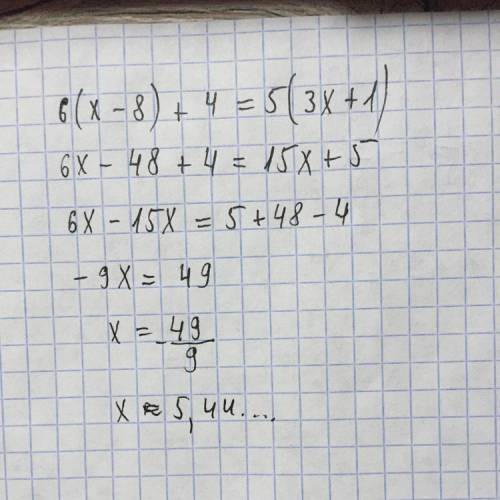 6(x-8) + 4 = 5(3x+1)
6x - 48 + 4 = 15x + 5
6x - 15x = 5 + 48 - 4
-9x = 49
x = -49/9
x ≈ 5,44....